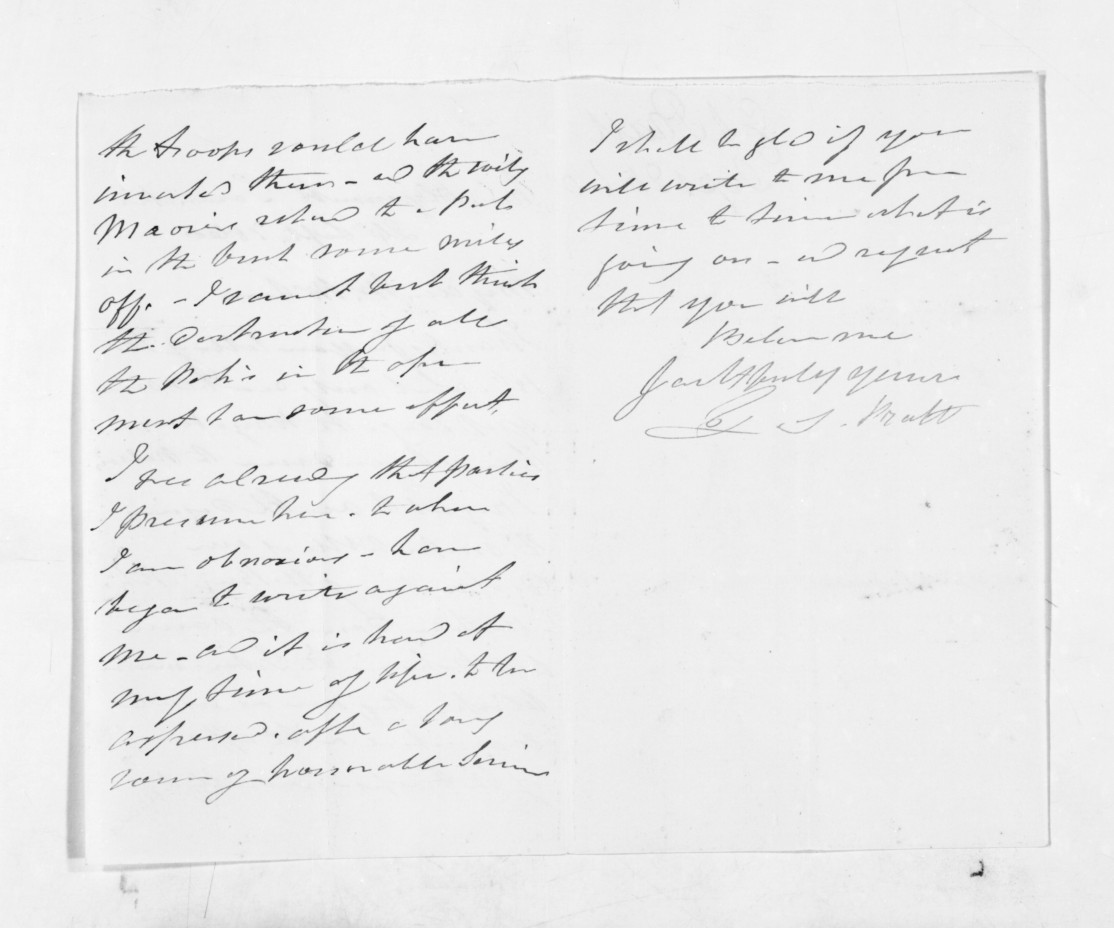 the troops could have
invested them - and the wily
Maories retired to a Pah
in the bush some miles
off. - I cannot but think
the destruction of all
the Pah's in the open
must have some effect.
I see already that parties
I presume here. to whom
I am obnoxious - have
began to write against
me - and it is hard at
my time of life. to be
aspersed. after a long
course of honourable Service
I shall be glad if you
will write to me from
time to time what is
going on - and request
that you will
Believe me
faithfully yours
T. S. Pratt